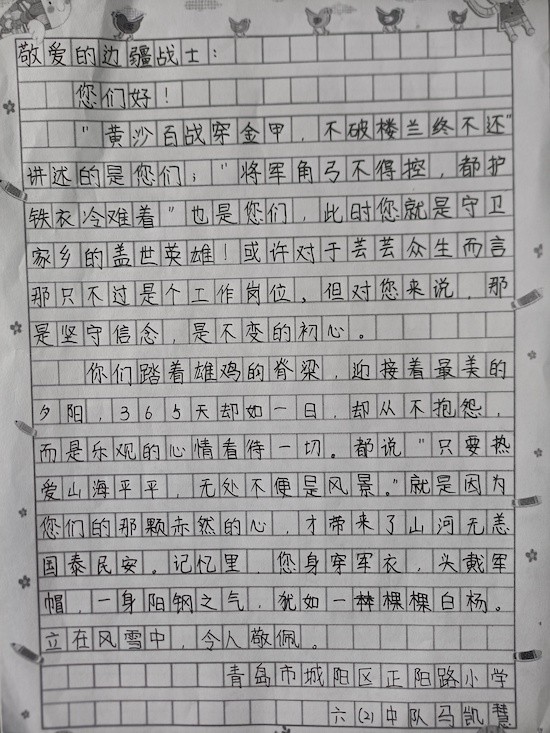 敬爱的边疆战士：
您们好！
"黄沙百战穿金甲，不破楼兰终不还"
讲述的是您们；"将军角弓不得控，都护
铁衣冷难着"也是您们，此时您就是守卫
家乡的盖世英雄！或许对于芸芸众生而言
那只不过是个工作岗位，但对您来说，那
是坚守信念，是不变的初心。
你们踏着雄鸡的脊梁，迎接着最美的
夕阳，365天却如一日，却从不抱怨，
而是乐观的心情看待一切。都说"只要热
爱山海平平，无处不便是风景。"就是因为
您们的那颗亦然的心，才带来了山河无恙
国泰民安。记忆里，您身穿军衣，头戴军
帽，一身阳钢之气，犹如一棵棵白杨。
立在风雪中，令人敬佩。
青岛市城阳区正阳路小学
六（2）中队马凯慧